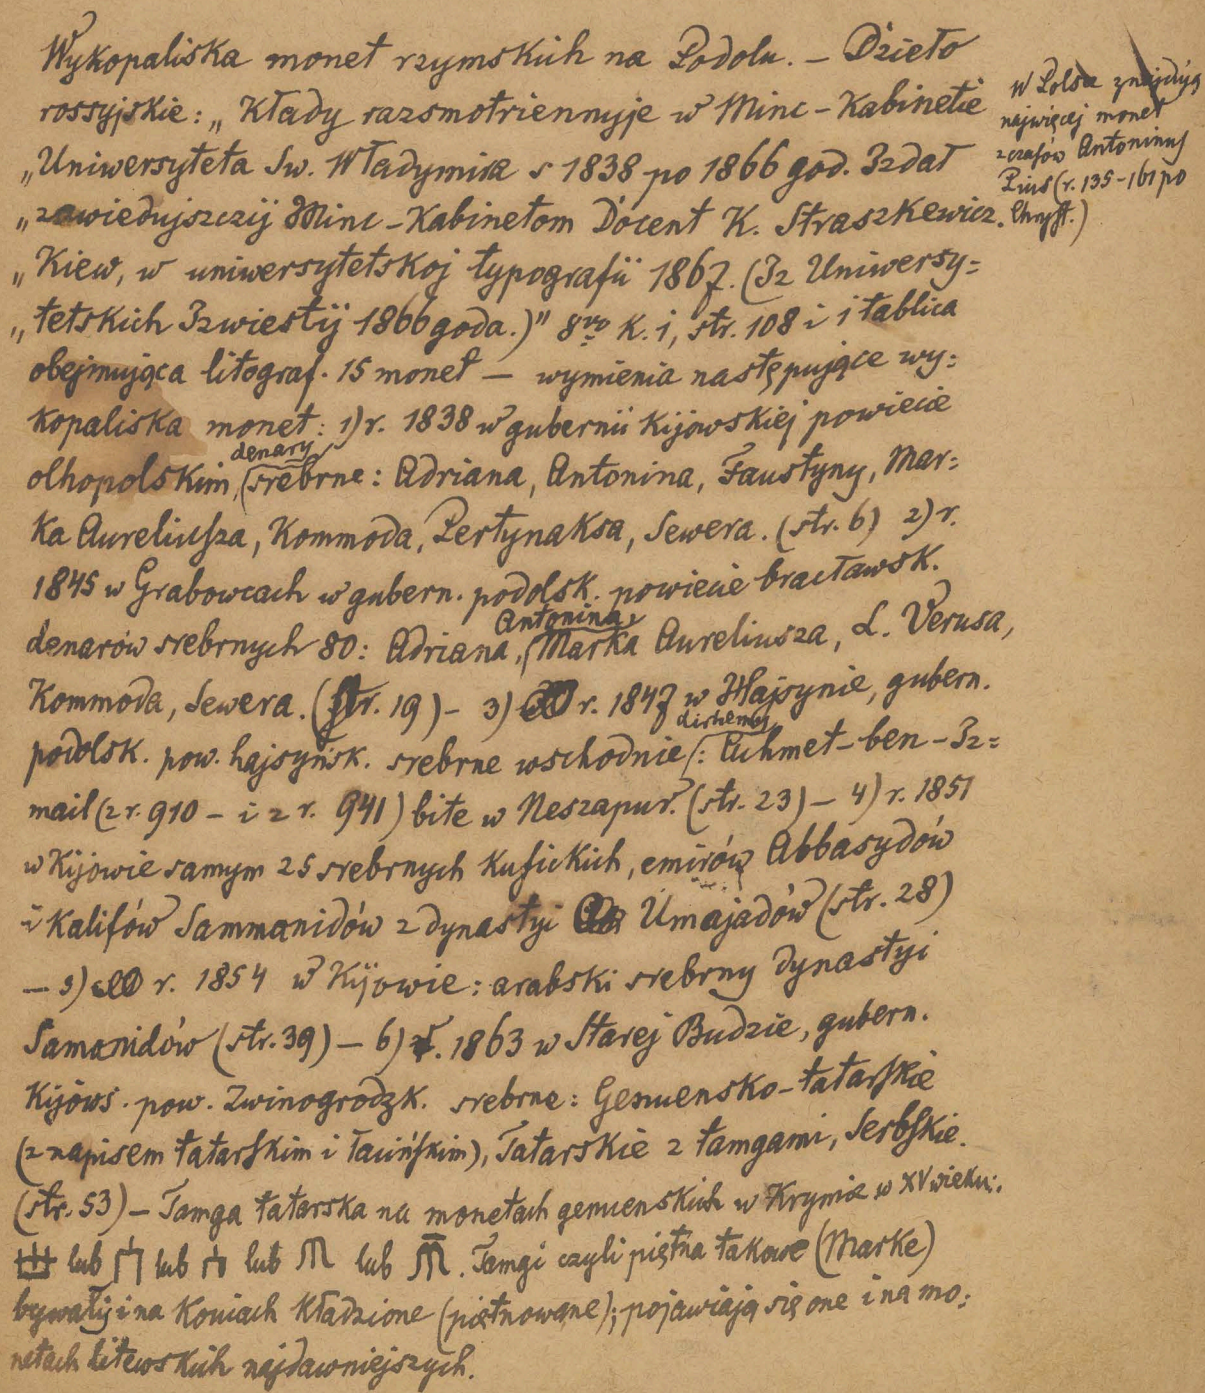 Wykopaliska monet rzymskich na Podolu. – Dzieło
rossyjskie: „Kłady razsmotriennyje w Minc-Kabinetie
„Uniwersyteta Sw. Władymira s 1838 po 1866 god. Izdał
„zawiedujszczij Minc-Kabinetom Docent K. Straszkewicz.
„Kiew, w uniwersytetskoj typografii 1867. (Iz Uniwersy=
„tetskich Izwiestij 1866 goda.)" 8vo K. i, str. 108 i 1 tablica
obejmująca litograf. 15 monet – wymienia następujące wy=
kopaliska monet: 1) r. 1838 w gubernii kijowskiej powiecie
olhopolskim, denary srebrne: Adriana, Antonina, Faustyny, Mar=
ka Aureliusza, Kommoda, Pertynaksa, Sewera. (str. 6) 2) r.
1845 w Grabowcach w gubern. podolsk. powiecie bracławsk.
denarów srebrnych 80: Adriana, Antonina, Marka Aureliusza, L. Verusa,
Kommoda, Sewera. (str. 19) – 3) r. 1847 w Hajsynie, gubern.
podolsk. pow. hajsyńsk. srebrne wschodnie dirhemy: Achmet-ben-Iz=
mail (z r. 910 – i z r. 941) bite w Neszapur. (str. 23) – 4) r. 1851
w Kijowie samym 25 srebrnych kufickich, emirów Abbasydów
i Kalifów Sammanidów z dynastyi Umajadów (str. 28)
– 5) r. 1854 w Kijowie: arabski srebrny dynastyi
Samanidów (str. 39) – 6) r. 1863 w Starej Budzie, gubern.
Kijows. pow. Zwinogrodzk. srebrne: Genuensko-tatarskie
(z napisem tatarskim i łacińskim), Tatarskie z tamgami, Serbskie.
(str. 53) – Tamga tatarska na monetach genuenskich w Krymie w XV wieku:
lub lub lub lub . Tamgi czyli piętna takowe (Marke)
bywały i na koniach kładzione (piętnowane); pojawiają się one i na mo=
netach litewskich najdawniejszych.
W Polsce znajdują
najwięcej monet
z czasów Antoninus
Pius (r. 135-161 po
Chryst.)